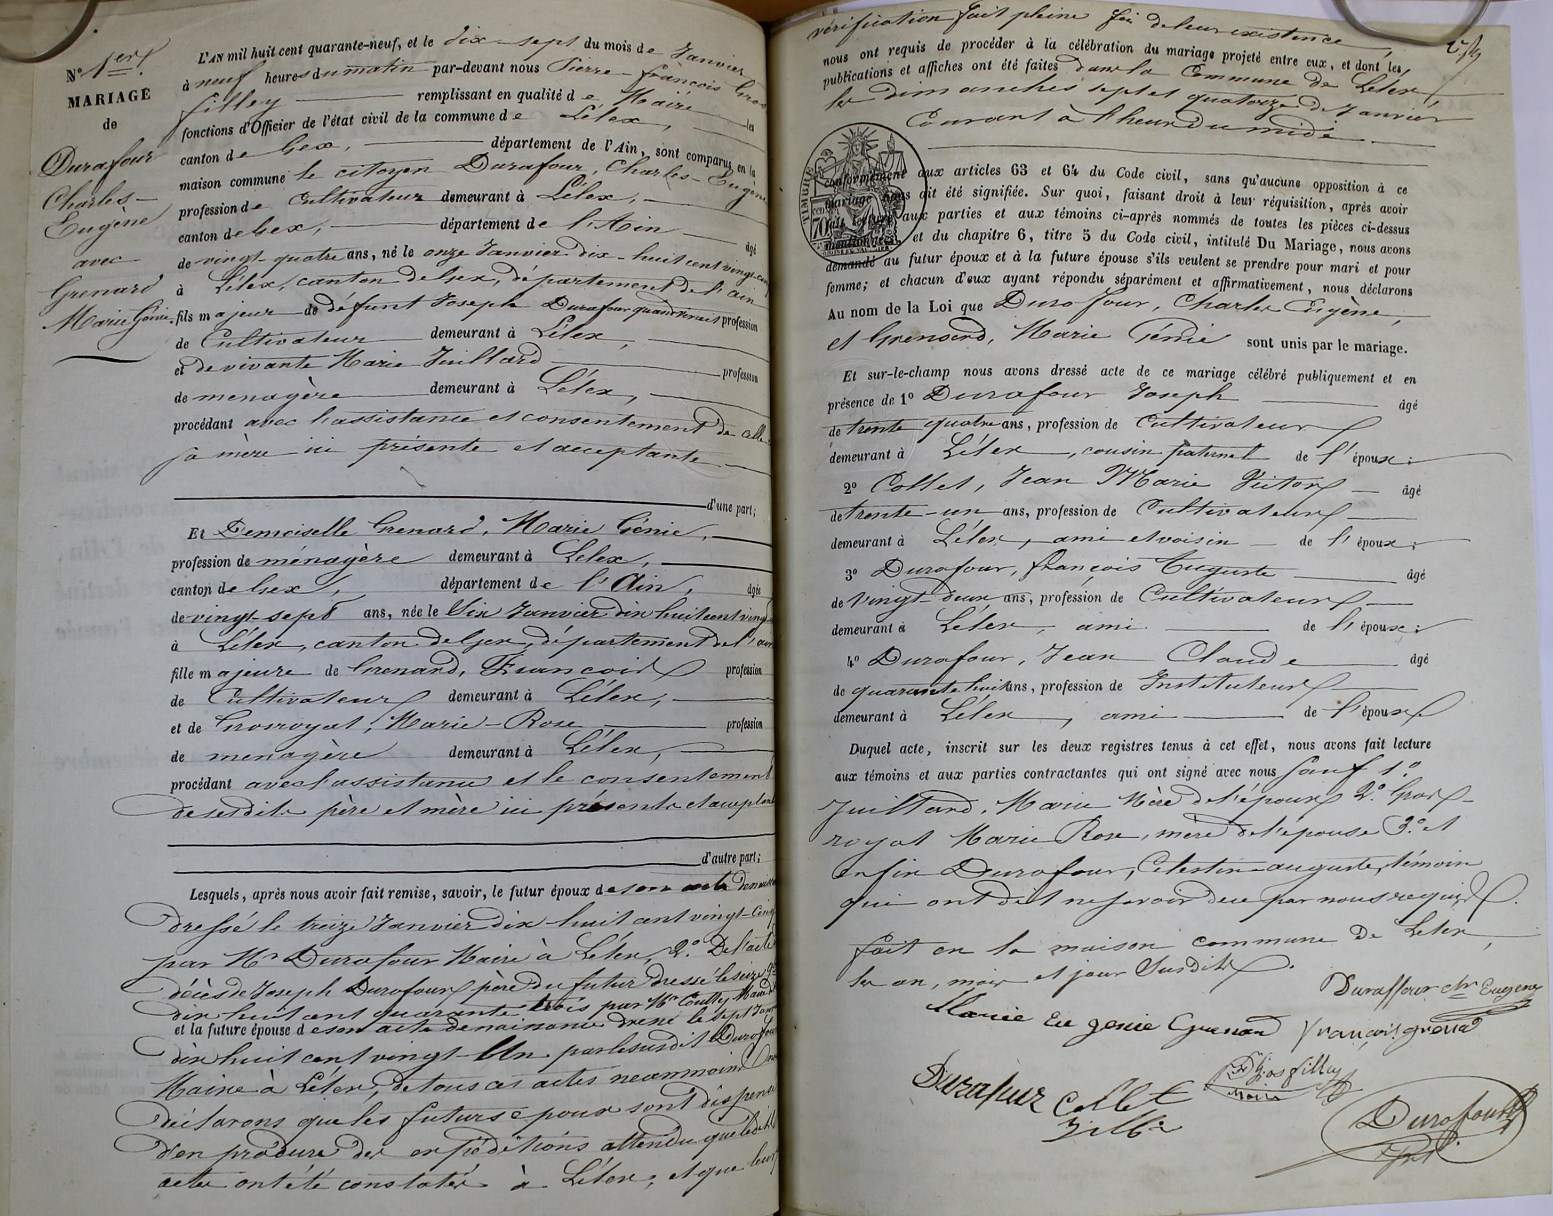 N° 1er
MARIAGE
de
Durafour
Charles-
Eugène
avec
Grenard
Marie Génie.
L'AN mil huit cent quarante-neuf, et le dix-sept du mois de Janvier
à neuf heures du matin par-devant nous Pierre-François Gros
filley remplissant en qualité de Maire les
fonctions d'Officier de l'état civil de la commune de Lélex,
canton de Gex, département de l'Ain, sont comparus en la
maison commune le citoyen Durafour, Charles-Eugène
profession de Cultivateur demeurant à Lélex,
canton de Gex, département de l'Ain âgé
de vingt quatre ans, né le onze Janvier dix-huit cent vingt-cinq
à Lélex, canton de Gex, département de l'ain
fils majeur de défunt Joseph Durafour quand vivait profession
de Cultivateur demeurant à Lélex,
et de vivante Marie Juillard profession
de menagère demeurant à Lélex,
procédant avec l'assistance et consentement de celle
sa mère ici présente et acceptante
d'une part;
Et Demoiselle Grenard, Marie Génie,
profession de ménagère demeurant à Lélex,
canton de Gex, département de l'Ain, âgée
de vingt-sept ans, née le Six Janvier dix huit cent vingt
à Lélex, canton de Gex, département de l'ain
fille majeure de Grenard, François profession
de Cultivateur demeurant à Lélex,
et de Grosroyat, Marie-Rose profession
de menagère demeurant à Lélex,
procédant avec l'assistance et le consentement
de sesdits père et mère ici présents et acceptants
d'autre part;
Lesquels, après nous avoir fait remise, savoir, le futur époux de son acte de naissance
dressé le treize Janvier dix huit cent vingt-cinq
par Mr Durafour Maire à Lélex, 2° De l'acte
décès de Joseph Durafour père du futur dressé le seize
dix huit cent quarante trois par Mr Maire
et la future épouse de son acte de naissance dressé le sept Janvier
dix huit cent vingt-Un par le susdit Durafour
Maire à Lélex, de tous ces actes neanmoins nous
déclarons que les futurs époux sont dispensés
d'en produire des expéditions attendu que lesdits
actes ont été constatés à Lélex, et que leur
vérification fait pleine foi de leur existence,
nous ont requis de procéder à la célébration du mariage projeté entre eux, et dont les
publications et affiches ont été faites dans la Commune de Lélex,
les dimanches sept et quatorze de Janvier
Courant à l'heure du midi
TIMBRE
70
conformément aux articles 63 et 64 du Code civil, sans qu'aucune opposition à ce
mariage nous ait été signifiée. Sur quoi, faisant droit à leur réquisition, après avoir
fait lecture aux parties et aux témoins ci-après nommés de toutes les pièces ci-dessus
mentionnées, et du chapitre 6, titre 5 du Code civil, intitulé Du Mariage, nous avons
demandé au futur époux et à la future épouse s'ils veulent se prendre pour mari et pour
femme; et chacun d'eux ayant répondu séparément et affirmativement, nous déclarons
Au nom de la Loi que Durafour, Charles Eugène,
et Grenard, Marie Génie sont unis par le mariage.
Et sur-le-champ nous avons dressé acte de ce mariage célébré publiquement et en
présence de 1° Durafour Joseph âgé
de trente quatre ans, profession de Cultivateur
demeurant à Lélex, cousin paternel de l'époux;
2° Collet, Jean Marie Victor âgé
de trente-un ans, profession de Cultivateur
demeurant à Lélex, ami et voisin de l'époux;
3° Durafour, françois Auguste âgé
de vingt-deux ans, profession de Cultivateur
demeurant à Lélex, ami de l'époux;
4° Durafour, Jean Claude âgé
de quarante huit ans, profession de Instituteur
demeurant à Lélex, ami de l'époux
Duquel acte, inscrit sur les deux registres tenus à cet effet, nous avons fait lecture
aux témoins et aux parties contractantes qui ont signé avec nous sauf 1°
Juillard, Marie Mère de l'époux 2° Gros-
royat Marie Rose, mère de l'épouse 3° et
enfin Durafour, Célestin-auguste, témoin
qui ont dit ne savoir de ce par nous requis.
fait en la maison commune de Lélex,
les an, mois et jour susdits.
Duraffour chs Eugene
Marie Eugenie Grenard françois grenard
Durafour Collet
Grosfilley
Maire
Durafour